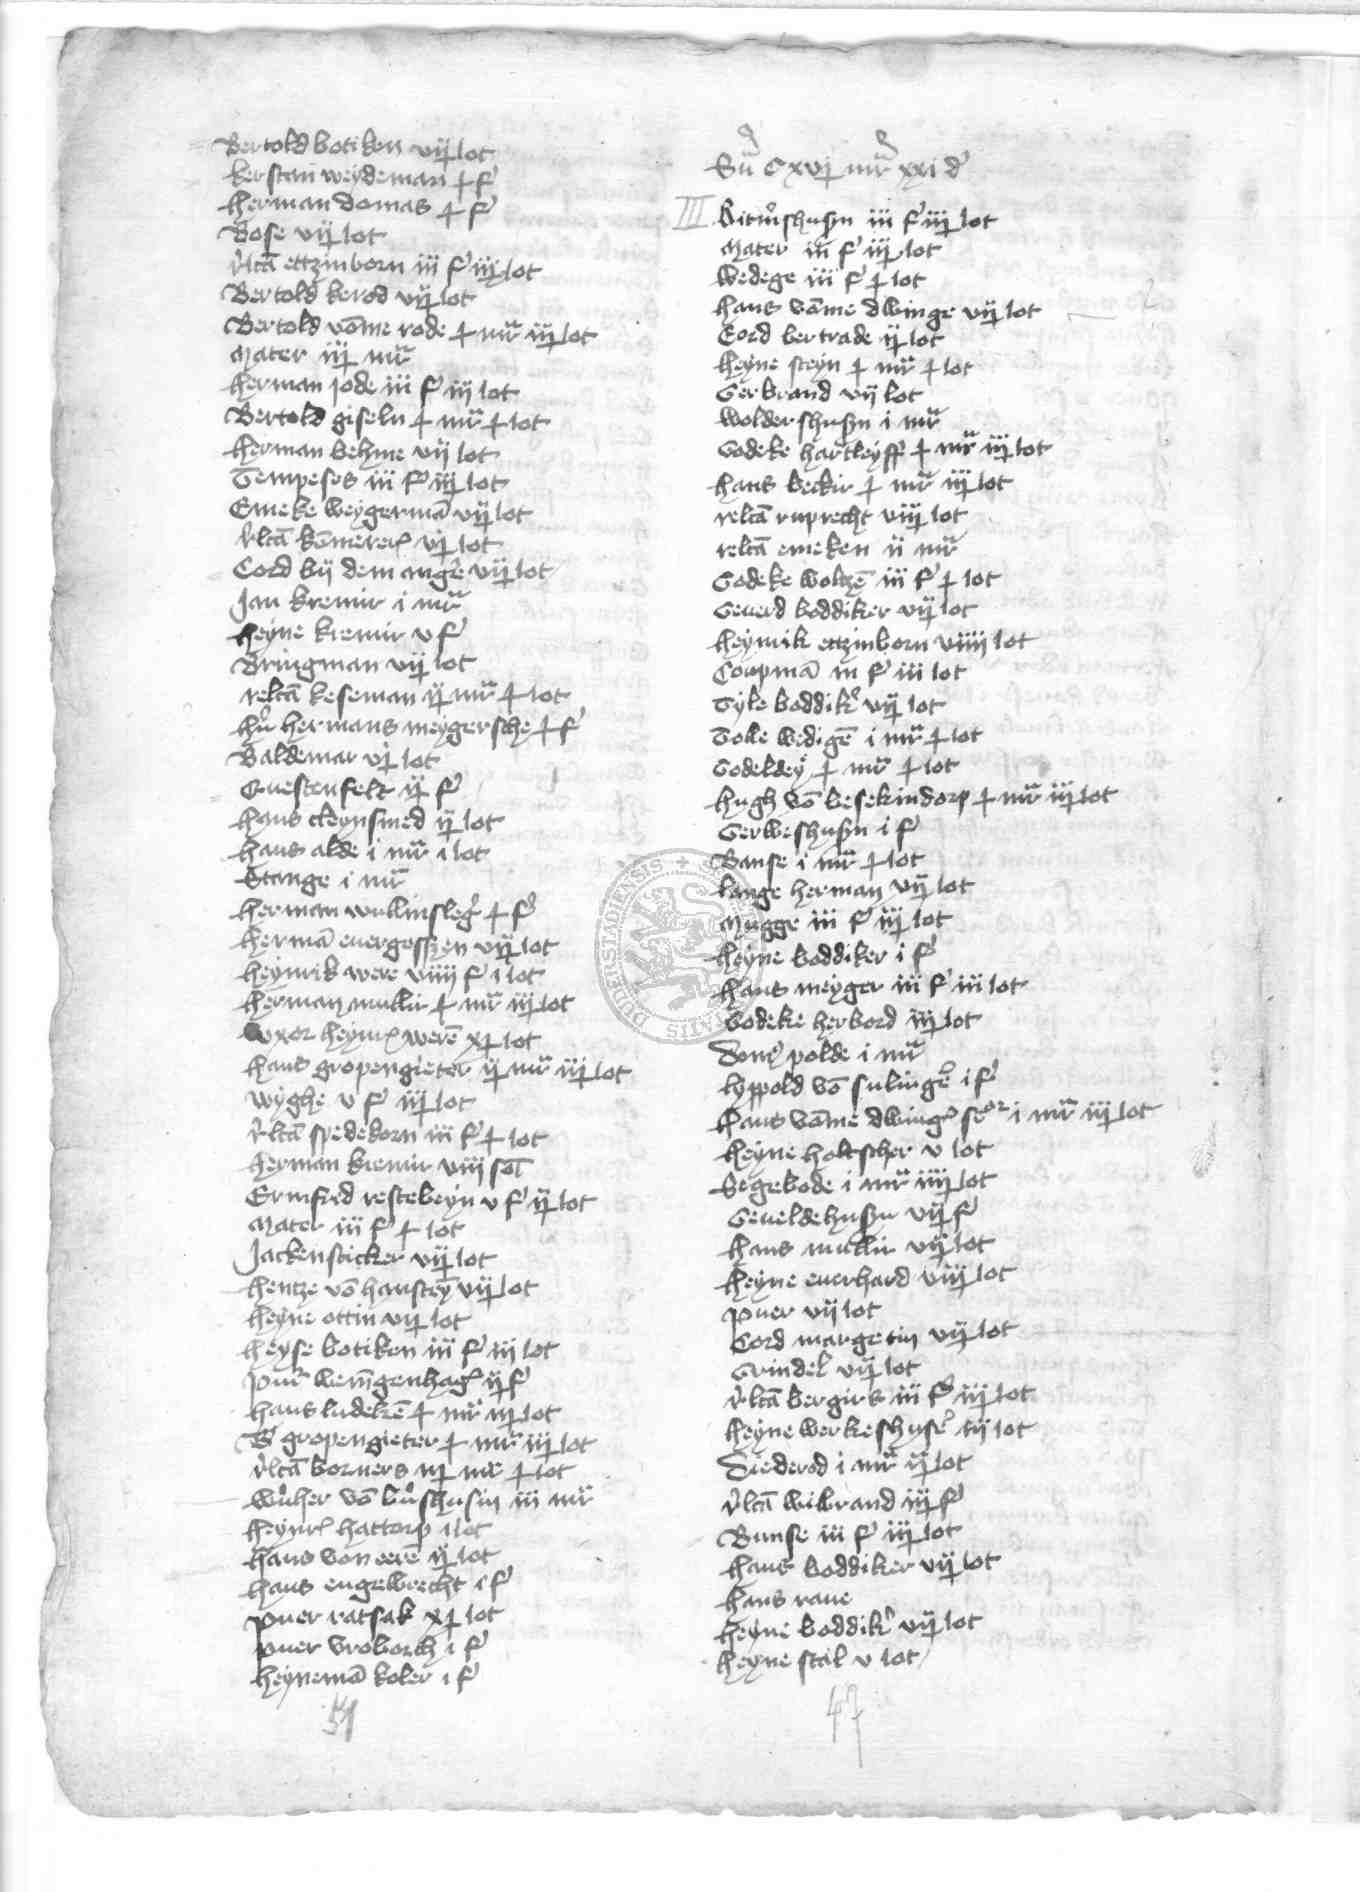 Bertold botiken vij lot
kerstan weydeman f
herman domas f
Bose vij lot
rlcta ettzinborn iii f iij lot
Bertold kerod vij lot
Bertold vame rode mr iij lot
Mater iij mr
herman jode iii f iij lot
Bertold giseln mr lot
herman behme vij lot
Tempeses iii f iij lot
Emeke weygerma vij lot
rlcta kemerer vj lot
Cord bij dem angere vij lot
Jan kremir i mr
heyne kremir v f
Bringman vij lot
relcta keseman ij mr lot
hermans meygersche f
Baldemar vj lot
Questenfelt ij f
hans cleynsmed ij lot
hans alde i mr i lot
Stange i mr
herman wullinsleger f
herma evergossen vij lot
heynrik were viiii f i lot
herman mullir mr iij lot
uxor heynr were xj lot
hans gropengieter ij mr iij lot
wyghe v f iij lot
rlcta spedekorn iii f lot
herman kremir viij sot
Ermfrid restebeyn v f ij lot
Mater iii f lot
Jackensticker vij lot
hentze vo hanstey vij lot
heyne ottin vij lot
heyse botiken iii f iij lot
puer wenigenhag ij f
hans ludeke mr iij lot
B gropengieter mr iij lot
rlcta borners iij mr lot
vo bushusin iii mr
heynr hattorp i lot
hans von eere ij lot
hans engelbrecht i f
puer ratsak xj lot
puer vroborch i f
heynema koler i f
51
Su Cxvj mr xxi d
III
Ditmershusin iii f iij lot
Mater iii f iij lot
wedege iii f lot
hans vame dwinge vij lot
Cord bertrade ij lot
heyne steyn mr lot
Gerbrand vij lot
woldershusin i mr
Godeke hartleyff mr iij lot
hans beckir mr iij lot
relcta ruprecht viij lot
relcta emeken ii mr
Godeke woltze iii f lot
Geverd boddiker vij lot
heynrik ettzinborn viiii lot
Coupma iii f iii lot
Tyle boddiker vij lot
Tolle wedige i mr lot
Godeldey mr lot
hugh vo besekindorp mr iij lot
Gerweshusin i f
Banse i mr lot
lange herman vij lot
Mugge iii f iij lot
heyne boddiker i f
hans meyger iii f iii lot
Godeke herbord iij lot
polde i mr
lyppold vo sulinge i f
hans vame dwinge seor i mr iij lot
heyne holtscher v lot
Segebode i mr iiij lot
Geveldehusin vij f
hans mullir vij lot
heyne everhard viij lot
puer vij lot
Cord margetin vij lot
Grindel vij lot
rlcta bergirs iii f iij lot
heyne werkeshuse iij lot
Diederod i mr ij lot
rlcta wibrand iij f
Bunse iii f iij lot
hans boddiker vij lot
hans rave
heyne boddiker vij lot
heyne stal v lot
47